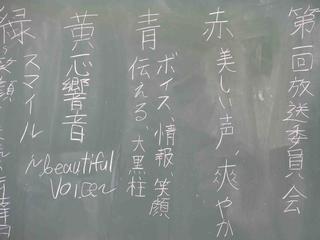 第一回放送委員会
赤 美しい声、爽やか
青 ボイス、情報、笑顔
伝える、大黒柱
黄 響音
~beautiful
voice~
緑 スマイル
笑顔